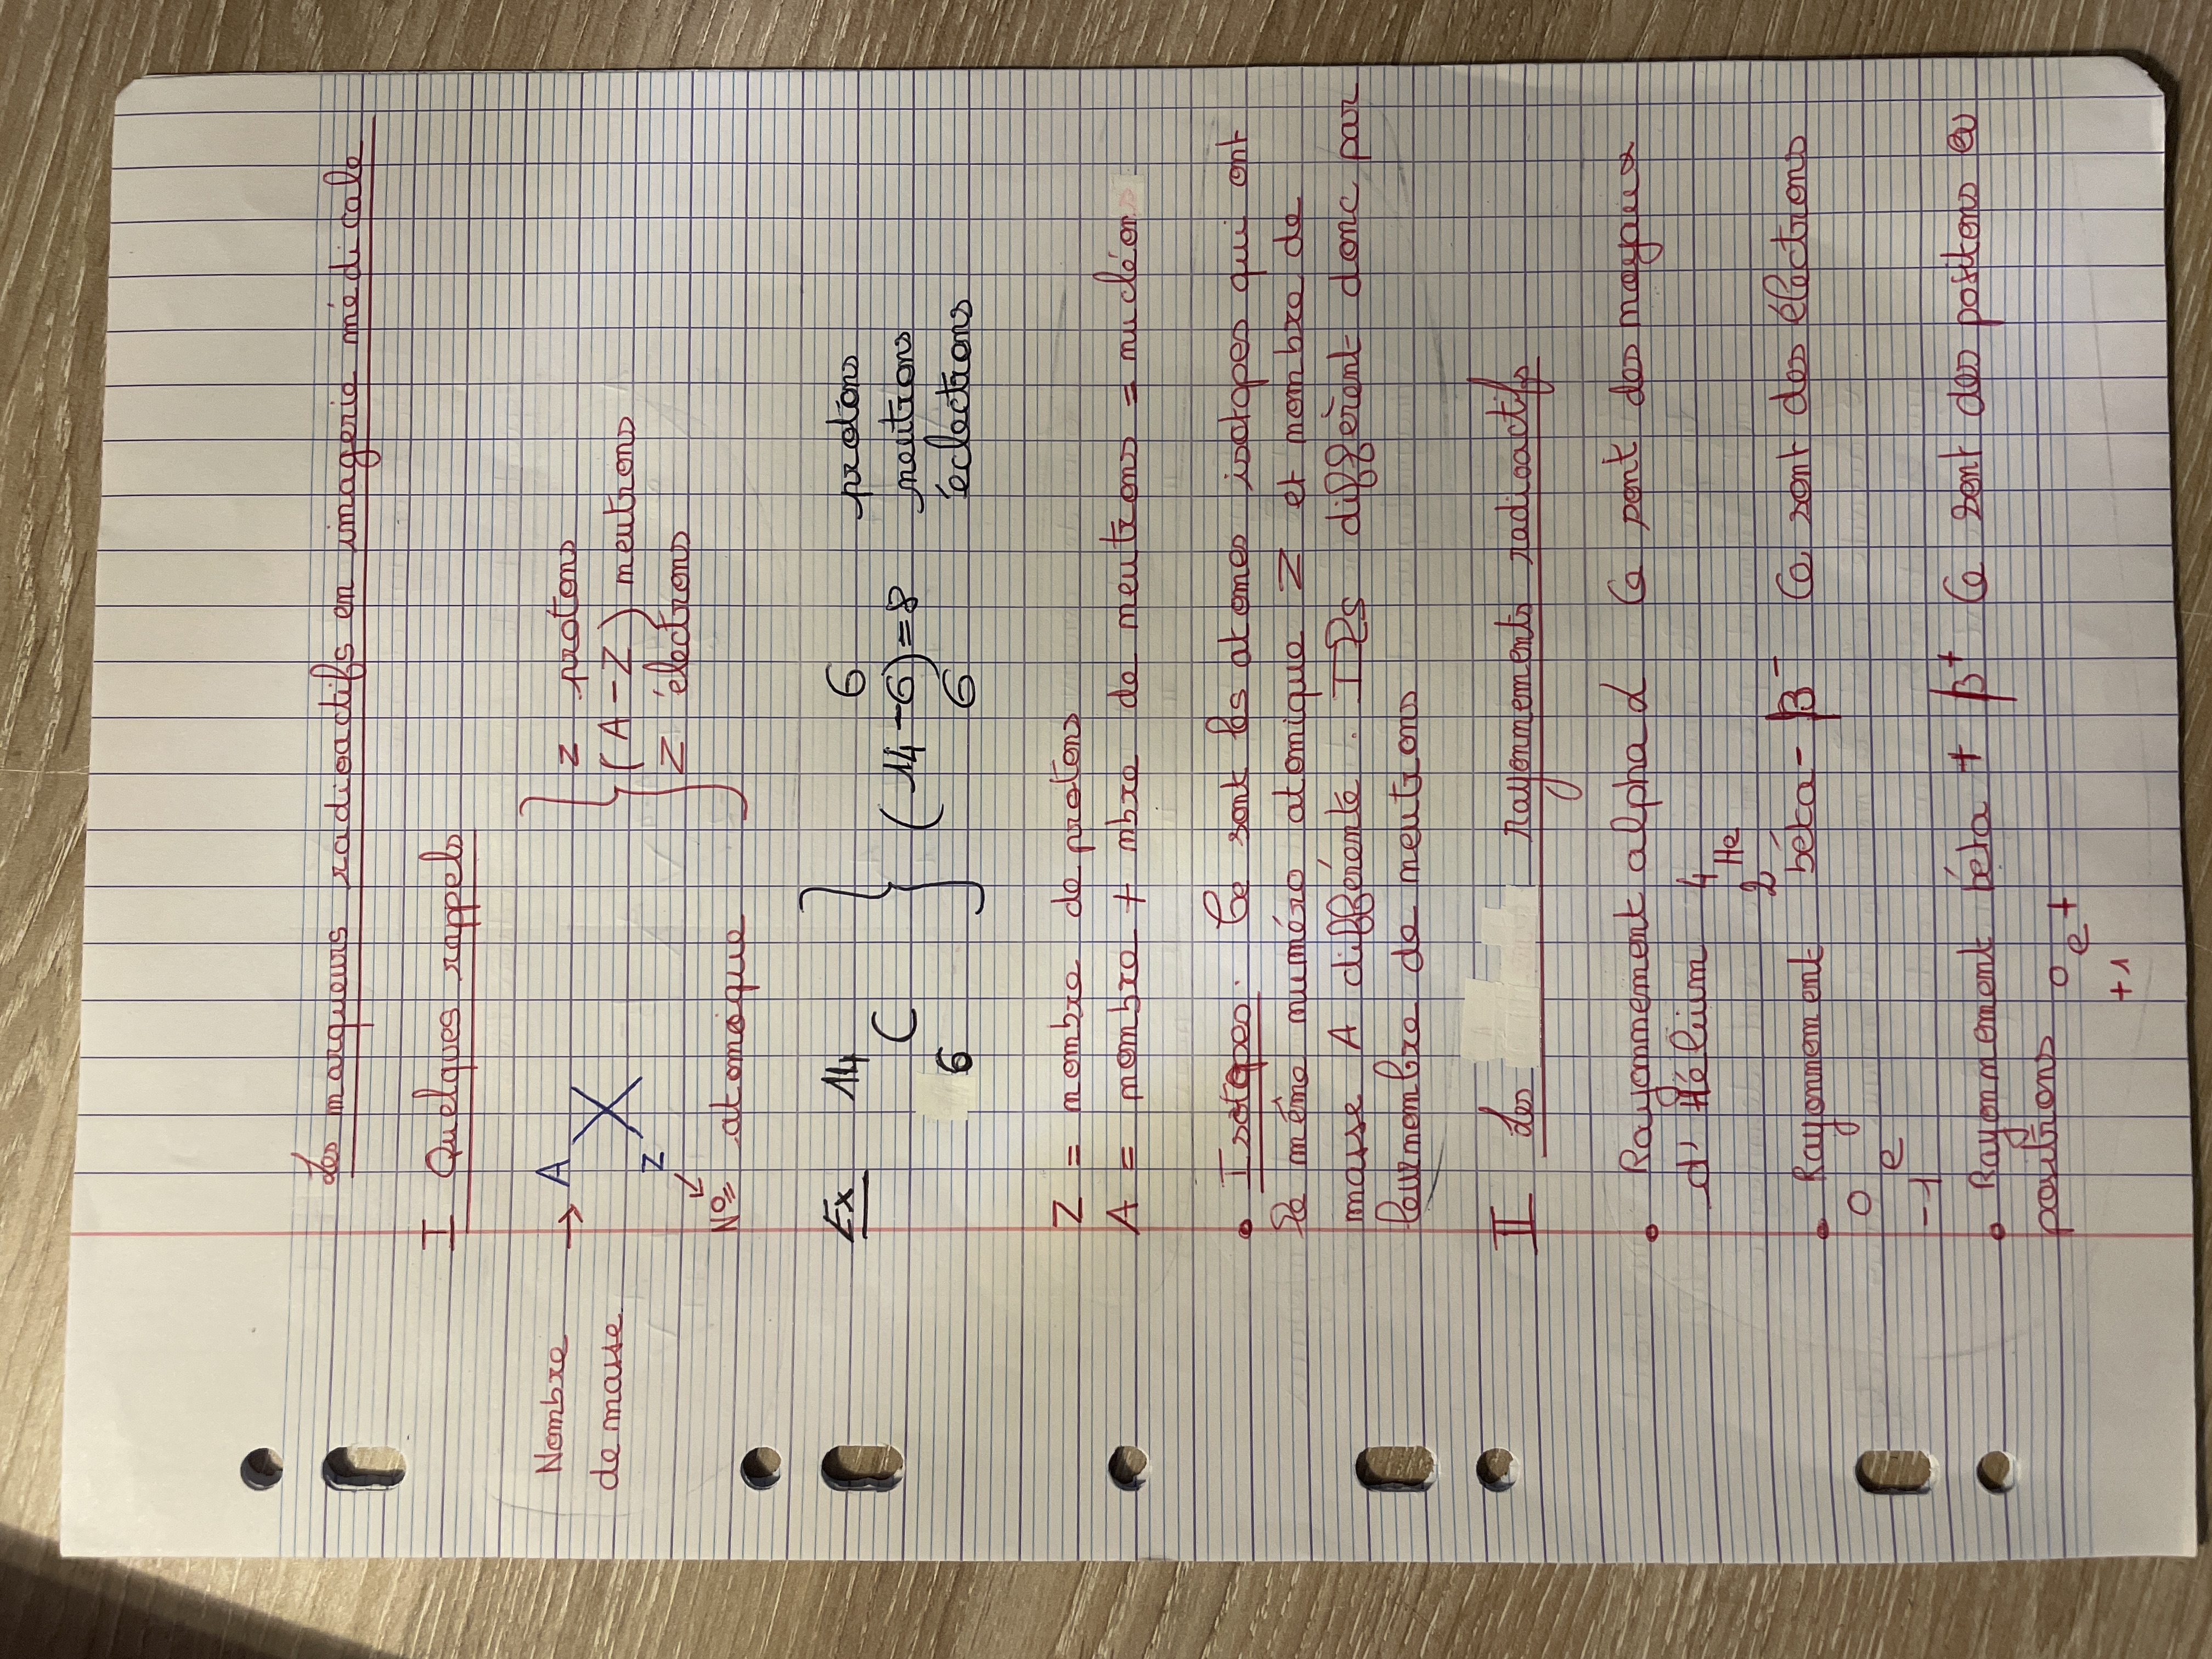 Les marqueurs radioactifs en imagerie médicale
I Quelques rappels
Nombre de masse → A
X
Z
N° atomique
Z protons
(A - Z) neutrons
Z électrons
Ex 14
C
6
6 protons
(14-6)=8 neutrons
6 éclectrons
Z = nombre de protons
A = nombre + nbre de neutrons = nucléon
• Isotopes. Ce sont les atomes isotopes qui ont
le même numéro atomique Z et nombre de
masse A différente. Ils diffèrent donc par
leur nombre de neutrons
II Les rayonnements radioactifs
• Rayonnement alpha α Ce sont des noyaux
d'Hélium 4
He
2
• Rayonnement béta- β⁻ Ce sont des électrons
0
e
-1
• Rayonnement béta + β⁺ Ce sont des positons ou
positrons 0 e +
+1